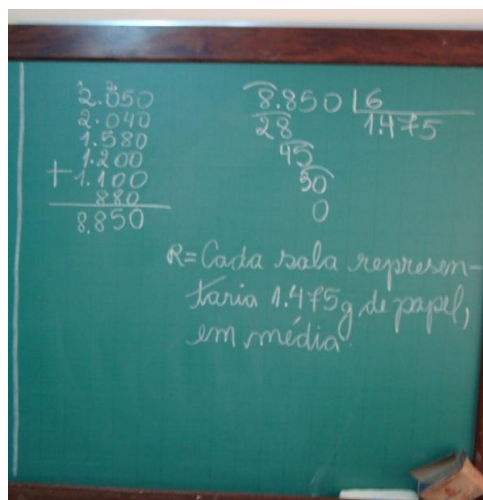 2.050
2.040
1.580
1.200
+ 1.100
880
8.850
8.850 6
28 1.475
45
30
0
R= Cada sala represen-
taria 1.475g de papel,
em média.